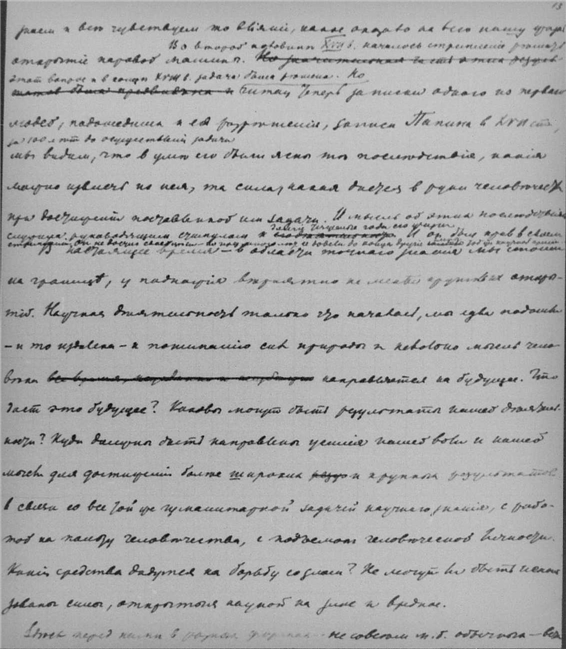 13
знаем и все чувствуем то влияние, какое оказало на всю нашу
Во второй половине XVII в. началось стремление решить
открытие паровой машины.
этот вопрос и в конце XVIII в. задача была решена. Но
читая теперь записки одного из первых
людей, подошедших к её разрешению, записи Папина в XVII ст.,
за 100 лет до осуществления задачи
мы видим, что в уме его были ясны те последствия, какие
можно извлечь из нея, та сила, какая дается в руки человечеству
при достижении поставленной им задачи. И мысль об этих последствиях
служила руководящим стимулом к И он был прав в своем
В настоящее время – в области точного знания мы стоим
на границе, у поднятия вероятно не менее крупных откры-
тий. Научная деятельность только что началась, мы едва подошли
– и то издалека – к пониманию сил природы и невольно мысль чело-
века направляется на будущее. Что
даст это будущее? Каковы могут быть результаты нашей деятель-
ности? Куда должны быть направлены усилия нашей воли и нашей
мысли для достижения более широких и крупных результатов
в связи со все той же гуманитарной задачей научного знания, с рабо-
той на пользу человечества, с подъемом человеческой личности.
Какие средства дадутся на борьбу со злом? Не могут ли быть исполь-
зованы силы, открытые наукой на злое и вредное.
перед нами в разных формах – не совсем м. б. обычного –